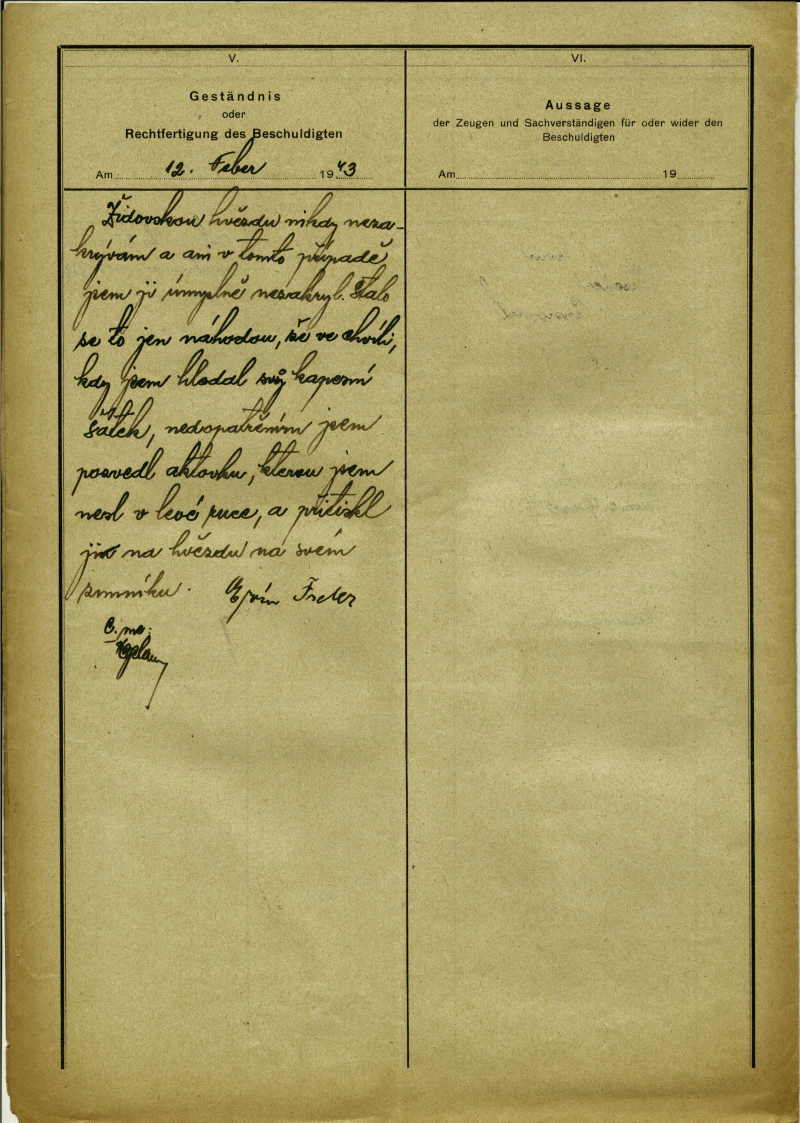 V.
Geständnis
oder
Rechtfertigung des Beschuldigten
Am 12. Feber 1943
Židovskou hvězdu nikdy neza-
krývám a ani v tomto případě
jsem ji úmyslně nezakryl. Stalo
se to jen náhodou, že ve chvíli,
kdy jsem hledal svůj kapesní
šátek, nedopatřením jsem
pozvedl aktovku, kterou jsem
nesl v levé ruce, a přitiskl
ji na hvězdu na svém
zimníku. Ervín
VI.
Aussage
der Zeugen und Sachverständigen für oder wider den
Beschuldigten
Am 19